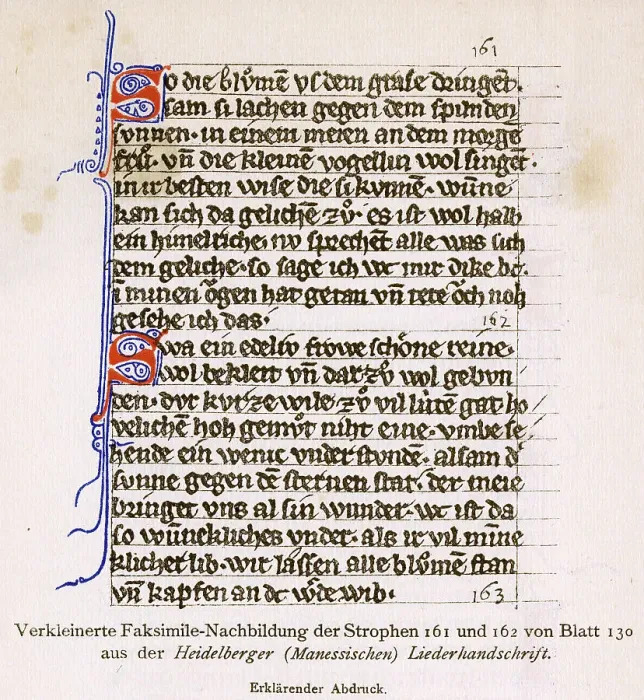 161
So die blůmē vs dem grase dringēt·
sam si lachen gegen dem spilnden
sunnen· in einem meien an dem morgē
frů· vn̄ die kleinē vogellin wol singēt·
in ir besten wise die si kvnnen· wūne
kan sich da gelichē zů· es ist wol halb
ein himelriche· nv sprechēt alle was sich
dem geliche· so sage ich wc mir dike bc·
ī minen ŏgen hat getan vn̄ tete ŏch noh
gesehe ich das·
162
Swa ein edeliv frowe schŏne reine·
wol bekleit vn̄ dar zů wol gebvn
den· dvr kvrzewile· zů vil lúten gat ho
velichen hoh gemůt niht eine· vmbe se
hende ein wenic vnder stvndē· alsam d'
sunne gegen dē sternen stat· der meie
bringet vns al sin wunder· wc ist da
so wūnekliches vnder· als ir vil mīne
klicher lib· wir lassen alle blůmē stan
vn̄ kapfen an dc w̄de wib·
163
Verkleinerte Faksimile-Nachbildung der Strophen 161 und 162 von Blatt 130
aus der Heidelberger (Manessischen) Liederhandschrift.
Erklärender Abdruck.